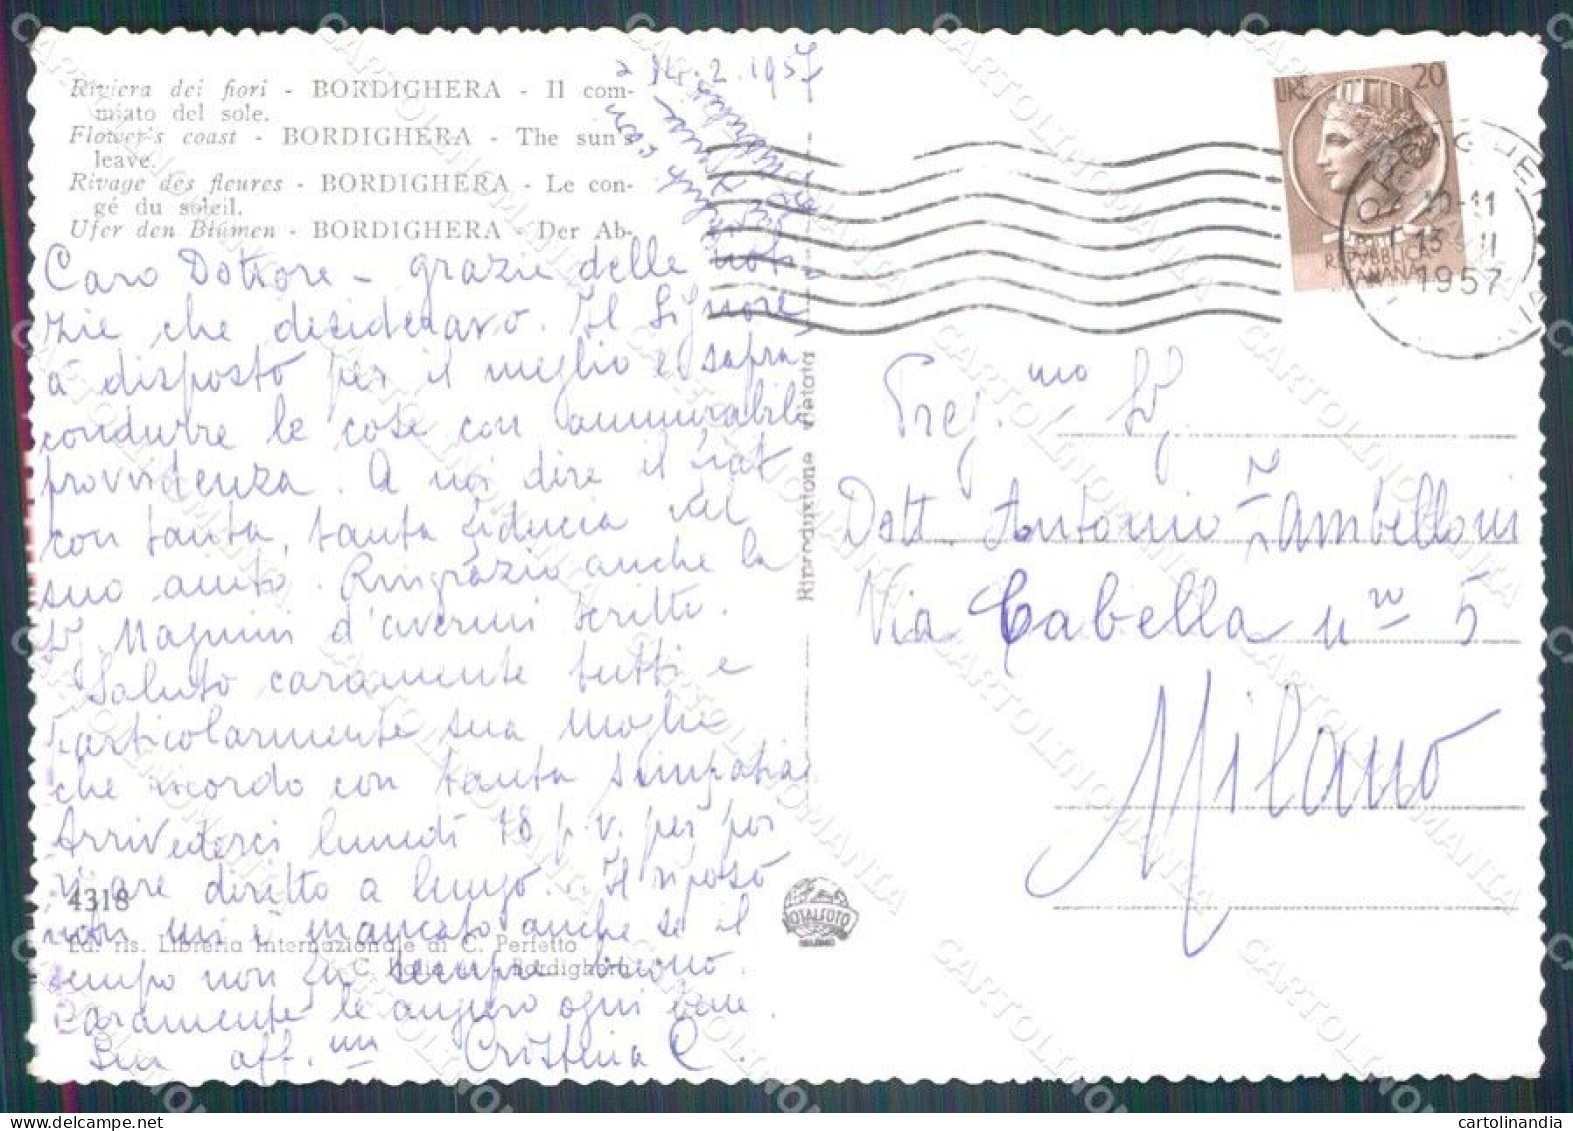 Riviera dei fiori - BORDIGHERA - Il com-
miato del sole.
Flower's coast - BORDIGHERA - The sun's
leave.
Rivage des fleures - BORDIGHERA - Le con-
gé du soleil.
Ufer den Blumen - BORDIGHERA - Der Ab-
2.1957
Caro Dottore - grazie delle noti-
zie che desideravo. Il Signore
à disposto per il meglio e saprà
condurre le cose con ammirabile
provvidenza. A noi dire il fiat
con tanta, tanta fiducia nel
suo aiuto. Ringrazio anche la
Magnini d'avermi scritto.
Saluto caramente tutti e
particolarmente sua moglie
che ricordo con tanta simpatia
Arrivederci lunedì 18 p.v. per poi
diritto a lungo. Il riposo
non mi è mancato anche se il
tempo non fu sempre buono.
Caramente le auguro ogni bene.
Sua aff.ma Cristina C.
4318
Ed. ris. Libreria Internazionale di C. Perfetto
Bordighera
Riproduzione vietata
TOTALFOTO
MILANO
LIRE 20
REPVBBLICA
ITALIANA
10-11
13 II
1957
Preg.mo
Dott. Antonio Zambelloni
Via Cabella nro 5
Milano
CARTOLINOMANIA
cartolinandia